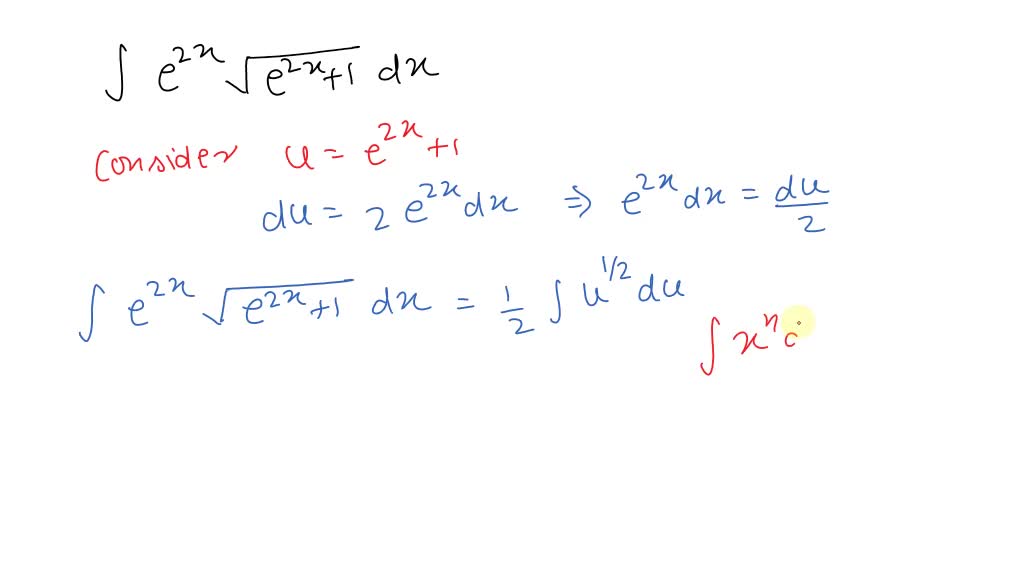 ∫ e^{2x} √(e^{2x}+1) dx
Consider u = e^{2x} +1
du = 2 e^{2x} dx ⇒ e^{2x} dx = du/2
∫ e^{2x} √(e^{2x}+1) dx = 1/2 ∫ u^{1/2} du
∫ x^n